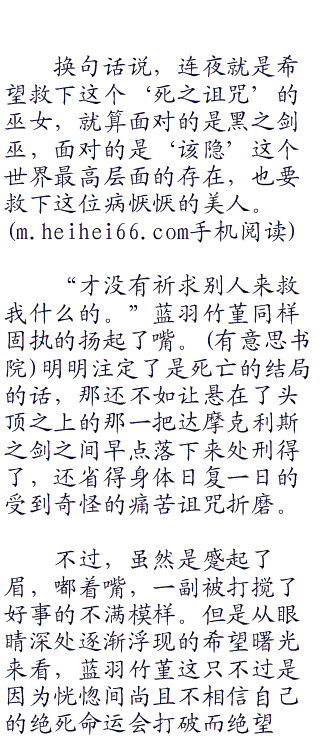 换句话说，连夜就是希
望救下这个‘死之诅咒’的
巫女，就算面对的是黑之剑
巫，面对的是‘该隐’这个
世界最高层面的存在，也要
救下这位病恹恹的美人。
(m.heihei66.com手机阅读)
“才没有祈求别人来救
我什么的。”蓝羽竹堇同样
固执的扬起了嘴。(有意思书
院)明明注定了是死亡的结局
的话，那还不如让悬在了头
顶之上的那一把达摩克利斯
之剑之间早点落下来处刑得
了，还省得身体日复一日的
受到奇怪的痛苦诅咒折磨。
不过，虽然是蹙起了
眉，嘟着嘴，一副被打搅了
好事的不满模样。但是从眼
睛深处逐渐浮现的希望曙光
来看，蓝羽竹堇这只不过是
因为恍惚间尚且不相信自己
的绝死命运会打破而绝望